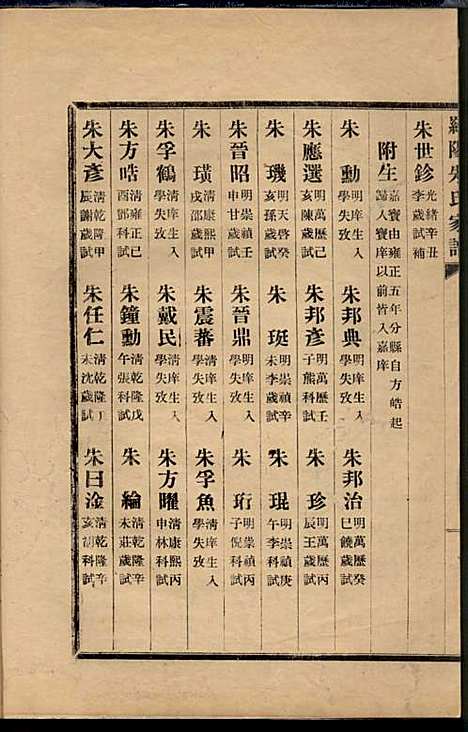 羅陽朱氏家譜
朱世鉁 光緒辛丑李歲試補
附生 嘉寶由雍正五年分縣自方晧起歸入寶庠以前皆入嘉庠
朱勳 明庠生入學失攷 朱邦典 明庠生入學失攷 朱邦治 明萬歷癸巳饒歲試
朱應選 明萬歷己亥陳歲試 朱邦彥 明萬歷壬子熊科試 朱珍 明萬歷壬辰王歲試
朱璣 明天啓癸亥孫歲試 朱珽 明崇禎辛未李歲試 朱琨 明崇禎庚午李科試
朱晉昭 明崇禎壬申甘歲試 朱晉鼎 明庠生入學失攷 朱珩 明崇禎丙子倪科試
朱璜 清康熙甲戌邵歲試 朱震蕃 清庠生入學失攷 朱孚魚 清庠生入學失攷
朱孚鶴 清庠生入學失攷 朱戴民 清庠生入學失攷 朱方曜 清康熙丙申林科試
朱方晧 清雍正己酉鄧科試 朱鐘勳 清乾隆戊午張科試 朱綸 清乾隆辛未莊歲試
朱大彥 清乾隆甲辰謝歲試 朱任仁 清乾隆丁未沈歲試 朱曰淦 清乾隆辛亥胡科試